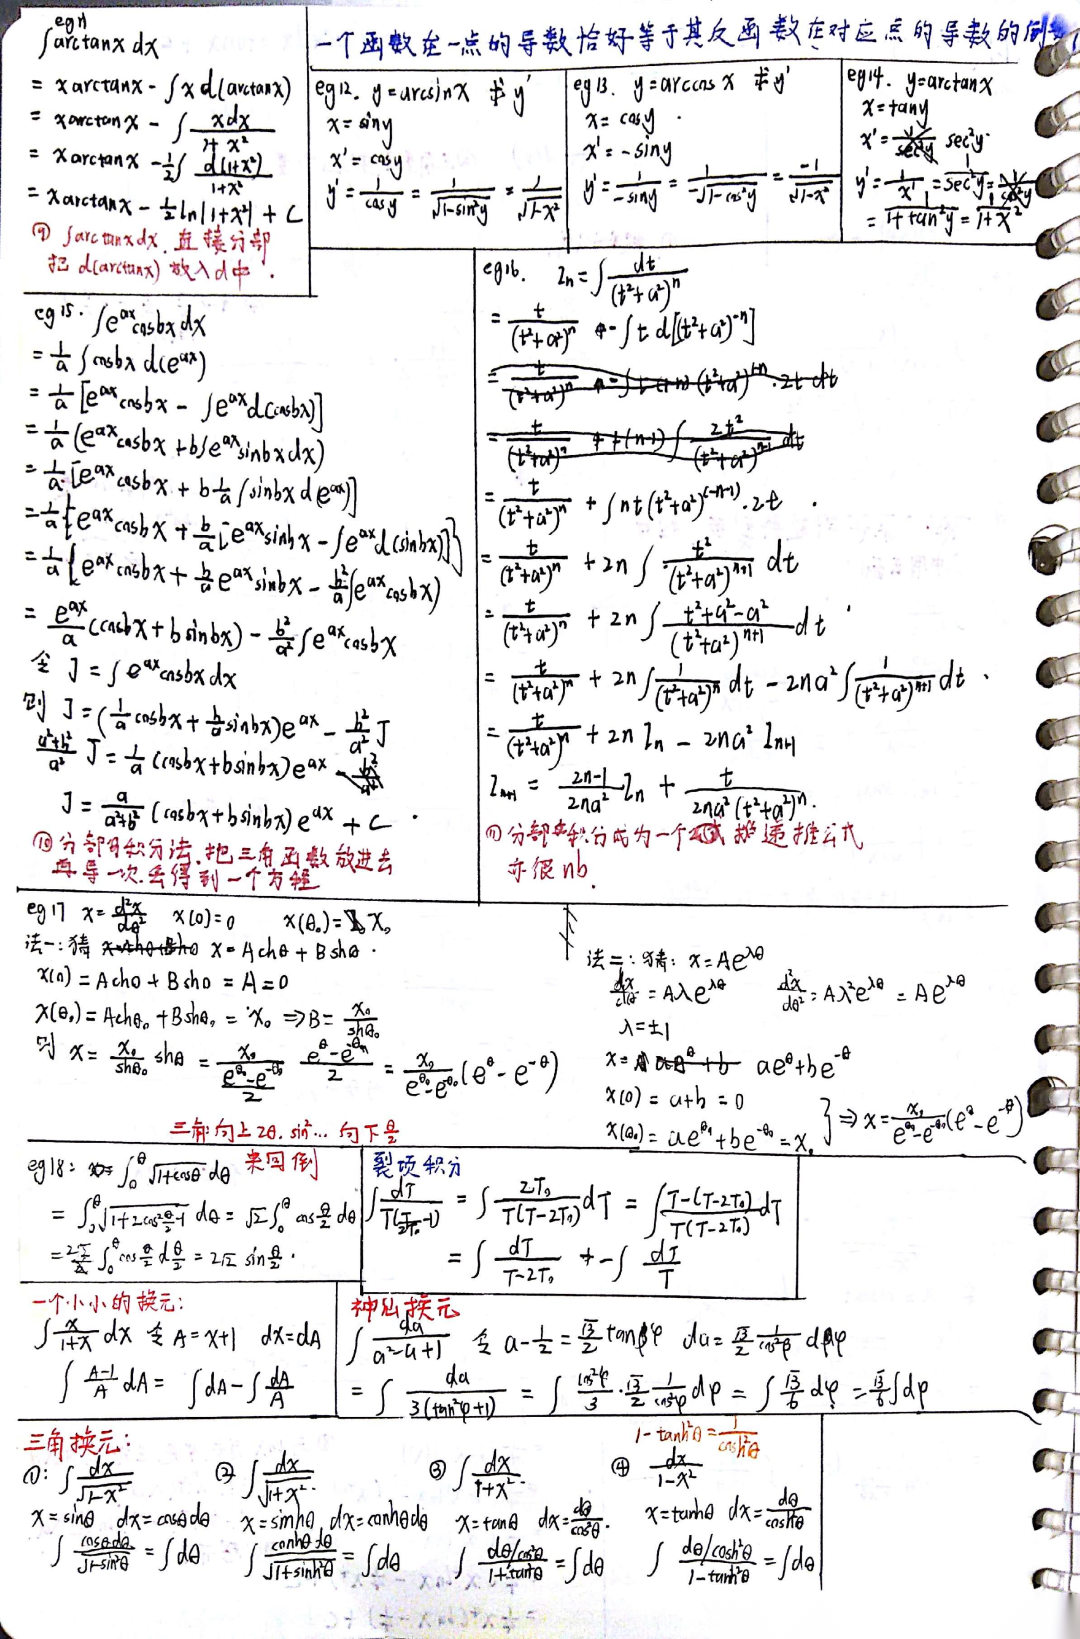 eg11
∫arctanx dx
= xarctanx - ∫x d(arctanx)
= xarctanx - ∫ xdx/(1+x²)
= xarctanx - ½∫ d(1+x²)/(1+x²)
= xarctanx - ½ln|1+x²| + C
⑨ ∫arctanxdx 直接分部
把 d(arctanx) 放入d中.
一个函数在一点的导数恰好等于其反函数在对应点的导数的倒数
eg12. y=arcsinx 求y'
x=siny
x'=cosy
y'=1/cosy = 1/√(1-sin²y) = 1/√(1-x²)
eg13. y=arccosx 求y'
x=cosy
x'=-siny
y'=1/(-siny) = 1/(-√(1-cos²y)) = -1/√(1-x²)
eg14. y=arctanx
x=tany
x'= sec²y
y'=1/x' = 1/sec²y
= 1/(1+tan²y) = 1/(1+x²)
eg15. ∫e^(ax)cosbx dx
= 1/a ∫cosbx d(e^(ax))
= 1/a [e^(ax)cosbx - ∫e^(ax)d(cosbx)]
= 1/a (e^(ax)cosbx + b∫e^(ax)sinbxdx)
= 1/a [e^(ax)cosbx + b·1/a ∫sinbx d e^(ax)]
= 1/a {e^(ax)cosbx + b/a [e^(ax)sinbx - ∫e^(ax)d(sinbx)]}
= 1/a {e^(ax)cosbx + b/a e^(ax)sinbx - b²/a ∫e^(ax)cosbx)
= e^(ax)/a (cosbx + bsinbx) - b²/a² ∫e^(ax)cosbx
令 J=∫e^(ax)cosbxdx
则 J=(1/a cosbx + b/a sinbx)e^(ax) - b²/a² J
(a²+b²)/a² J = 1/a (cosbx+bsinbx)e^(ax)
J = a/(a²+b²) (cosbx+bsinbx)e^(ax) + C
⑩ 分部积分法,把三角函数放进去
再导一次会得到一个方程
eg16. In=∫dt/(t²+a²)^n
= t/(t²+a²)^n - ∫t d[(t²+a²)^(-n)]
= t/(t²+a²)^n + ∫nt(t²+a²)^(-n-1)·2t
= t/(t²+a²)^n + 2n∫ t²/(t²+a²)^(n+1) dt
= t/(t²+a²)^n + 2n∫ (t²+a²-a²)/(t²+a²)^(n+1) dt
= t/(t²+a²)^n + 2n∫ 1/(t²+a²)^n dt - 2na²∫ 1/(t²+a²)^(n+1) dt
= t/(t²+a²)^n + 2n In - 2na² In+1
In+1 = (2n-1)/(2na²) In + t/(2na²(t²+a²)^n).
⑪ 分部积分成为一个递推公式
亦很nb.
eg17 x=d²x/dθ² x(0)=0 x(θ₀)=x₀
法一:猜 x=Achθ+Bshθ
x(0)=Ach0+Bsh0=A=0
x(θ₀)=Achθ₀+Bshθ₀=x₀ ⇒B=x₀/shθ₀
则 x= x₀/shθ₀ shθ = x₀/((e^θ₀-e^-θ₀)/2) (e^θ-e^-θ)/2 = x₀/(e^θ₀-e^-θ₀) (e^θ-e^-θ)
法二:猜: x=Ae^(λθ)
dx/dθ=Aλe^(λθ) d²x/dθ²=Aλ²e^(λθ)=Ae^(λθ)
λ=±1
x= ae^θ+be^-θ
x(0)=a+b=0
x(θ₀)=ae^θ₀+be^-θ₀=x₀ } ⇒ x=x₀/(e^θ₀-e^-θ₀) (e^θ-e^-θ)
三角:向上2θ, sin²… 向下θ/2
来回倒
eg18: ∫₀^θ √(1+cosθ) dθ
= ∫₀^θ √(1+2cos²θ/2-1) dθ = √2∫₀^θ cosθ/2 dθ
= 2√2 ∫₀^θ cosθ/2 dθ/2 = 2√2 sinθ/2.
裂项积分
∫ dT/(T(T/2T₀-1)) = ∫ 2T₀/(T(T-2T₀)) dT = ∫ (T-(T-2T₀))/(T(T-2T₀)) dT
= ∫ dT/(T-2T₀) - ∫ dT/T
一个小小的换元:
∫ x/(1+x) dx 令A=x+1 dx=dA
∫ (A-1)/A dA = ∫dA - ∫dA/A
神仙换元
∫ da/(a²-a+1) 令 a-½=√3/2 tanφ da=√3/2 1/cos²φ dφ
= ∫ da/(3(tan²φ+1)) = ∫ cos²φ/3 · √3/2 1/cos²φ dφ = ∫ √3/6 dφ = √3/6∫dφ
三角换元:
①: ∫ dx/√(1-x²)
x=sinθ dx=cosθdθ
∫ cosθdθ/√(1-sin²θ) = ∫dθ
② ∫ dx/√(1+x²)
x=sinhθ, dx=conhθdθ
∫ conhθdθ/√(1+sinh²θ) = ∫dθ
③ ∫ dx/(1+x²)
x=tanθ dx=dθ/cos²θ.
∫ (dθ/cos²θ)/(1+tan²θ) = ∫dθ
1-tanh²θ=1/cosh²θ
④ dx/(1-x²)
x=tanhθ dx=dθ/cosh²θ
∫ (dθ/cosh²θ)/(1-tanh²θ) = ∫dθ